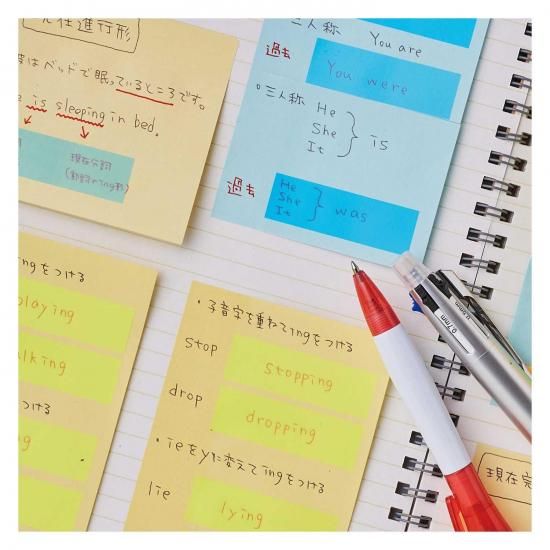 在進行形
はベッドで眠っているところです。
is sleeping in bed.
現在分詞
(動詞のing形)
三人称
You are
過去
You were
三人称
He
She
It
is
過去
He
She
It
was
ingをつける
playing
alking
つける
ng
・子音字を重ねてingをつける
stop
stopping
drop
dropping
・ieをyに変えてingをつける
lie
lying
0.7mm
現在完